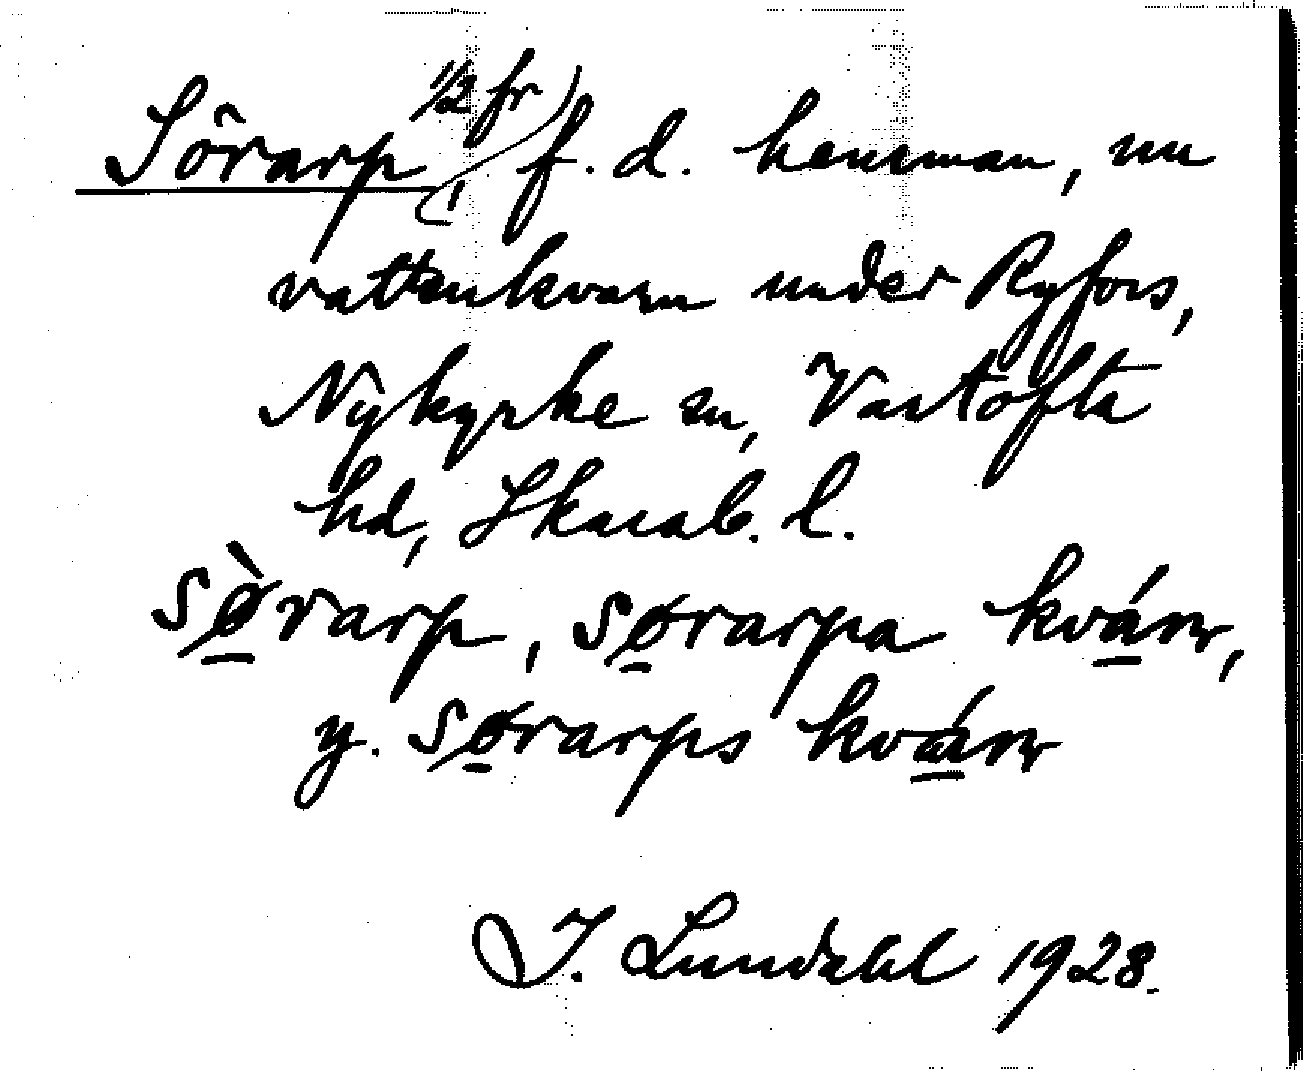 Sörarp, ½ fr f. d. hemman, nu
vattenkvarn under Ryfors,
Nykyrke sn, Vartofta
hd, Skarab. l.
sø̀rarp, sørarpa kvárn,
y. sørarps kvárn
J. Lundahl 1928.